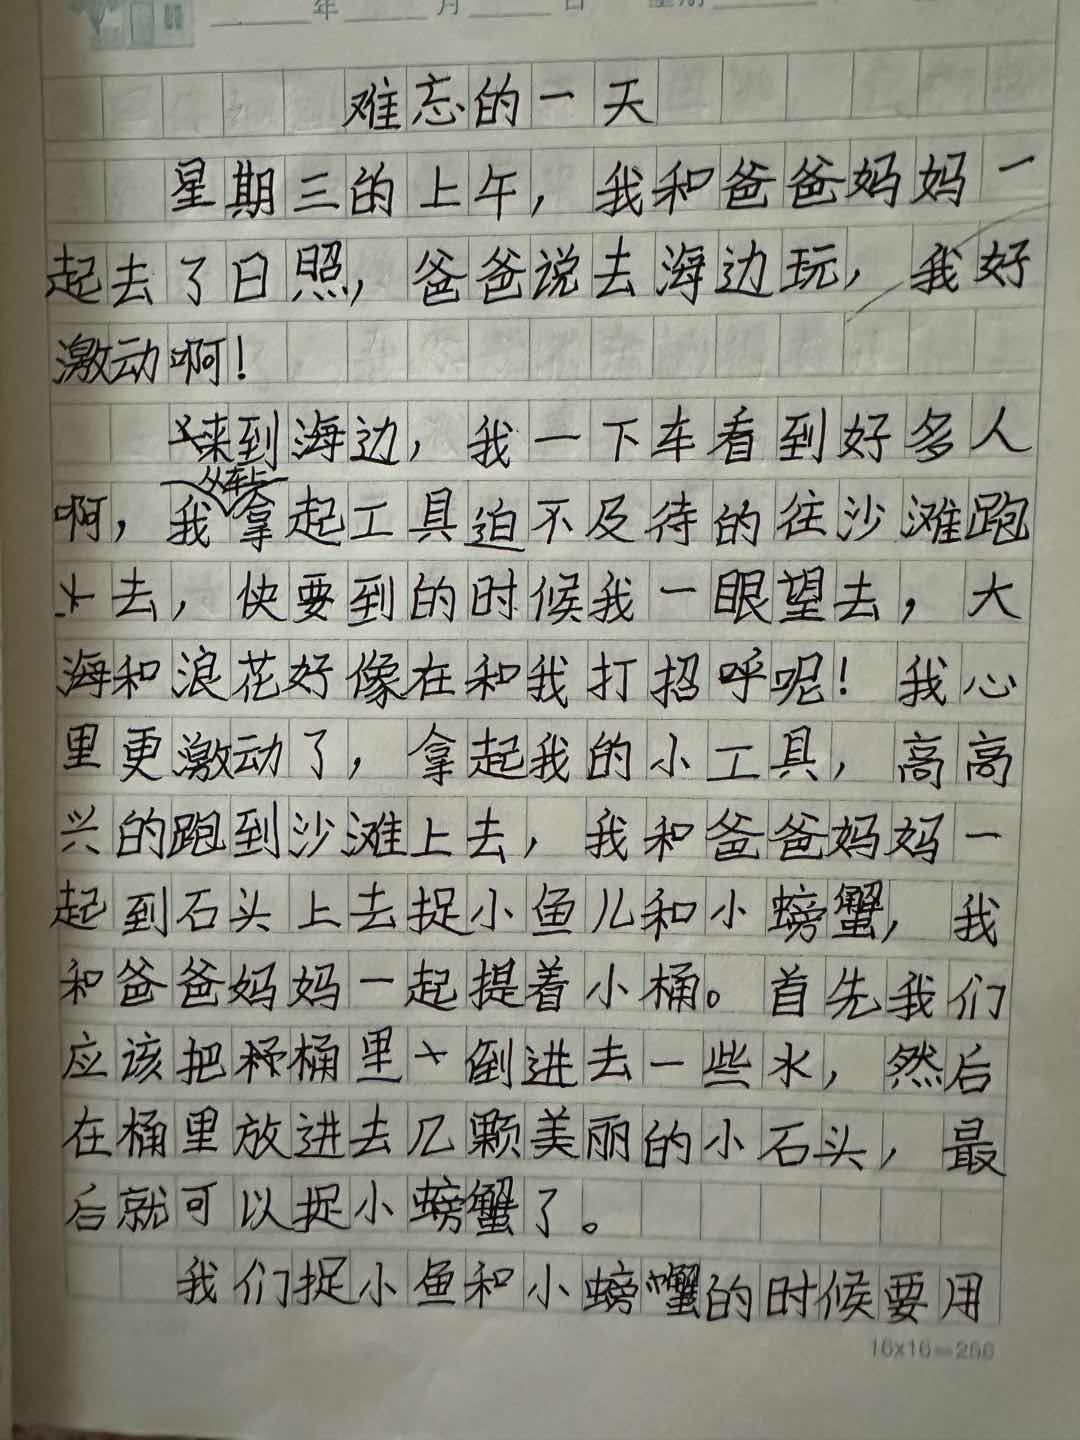 年 月 日 星期
难忘的一天
星期三的上午，我和爸爸妈妈一
起去了日照，爸爸说去海边玩，我好
激动啊！
来到海边，我一下车看到好多人
从车上
啊，我拿起工具迫不及待的往沙滩跑
去，快要到的时候我一眼望去，大
海和浪花好像在和我打招呼呢！我心
里更激动了，拿起我的小工具，高高
兴的跑到沙滩上去，我和爸爸妈妈一
起到石头上去捉小鱼儿和小螃蟹，我
和爸爸妈妈一起提着小桶。首先我们
应该把桶里倒进去一些水，然后
在桶里放进去几颗美丽的小石头，最
后就可以捉小螃蟹了。
我们捉小鱼和小螃蟹的时候要用
16×16=256